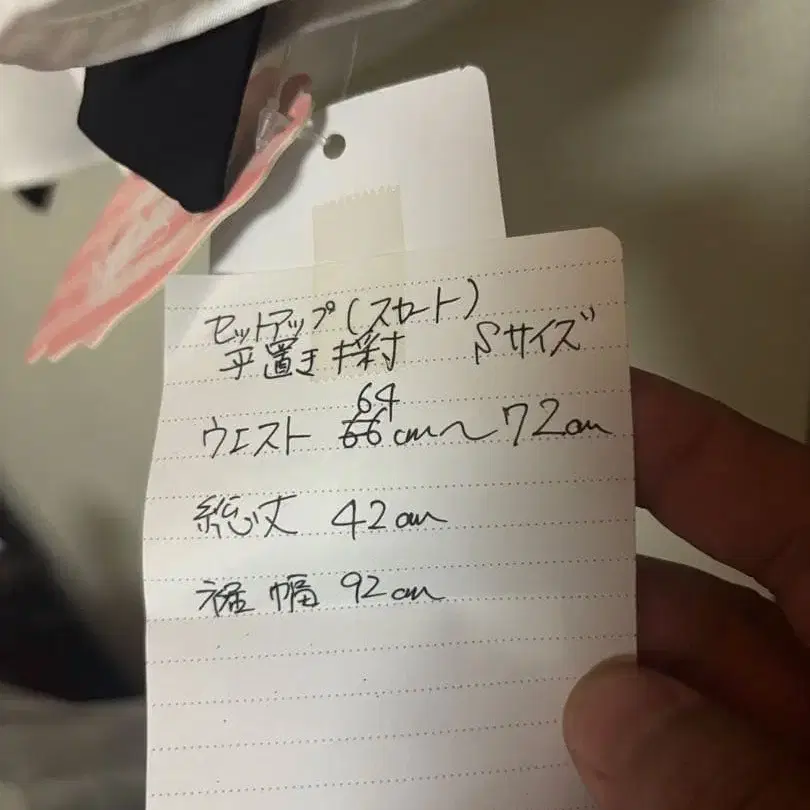 セットアップ(スカート)
平置き採寸 Sサイズ
64
ウエスト 66cm〜72cm
総丈 42cm
裾幅 92cm